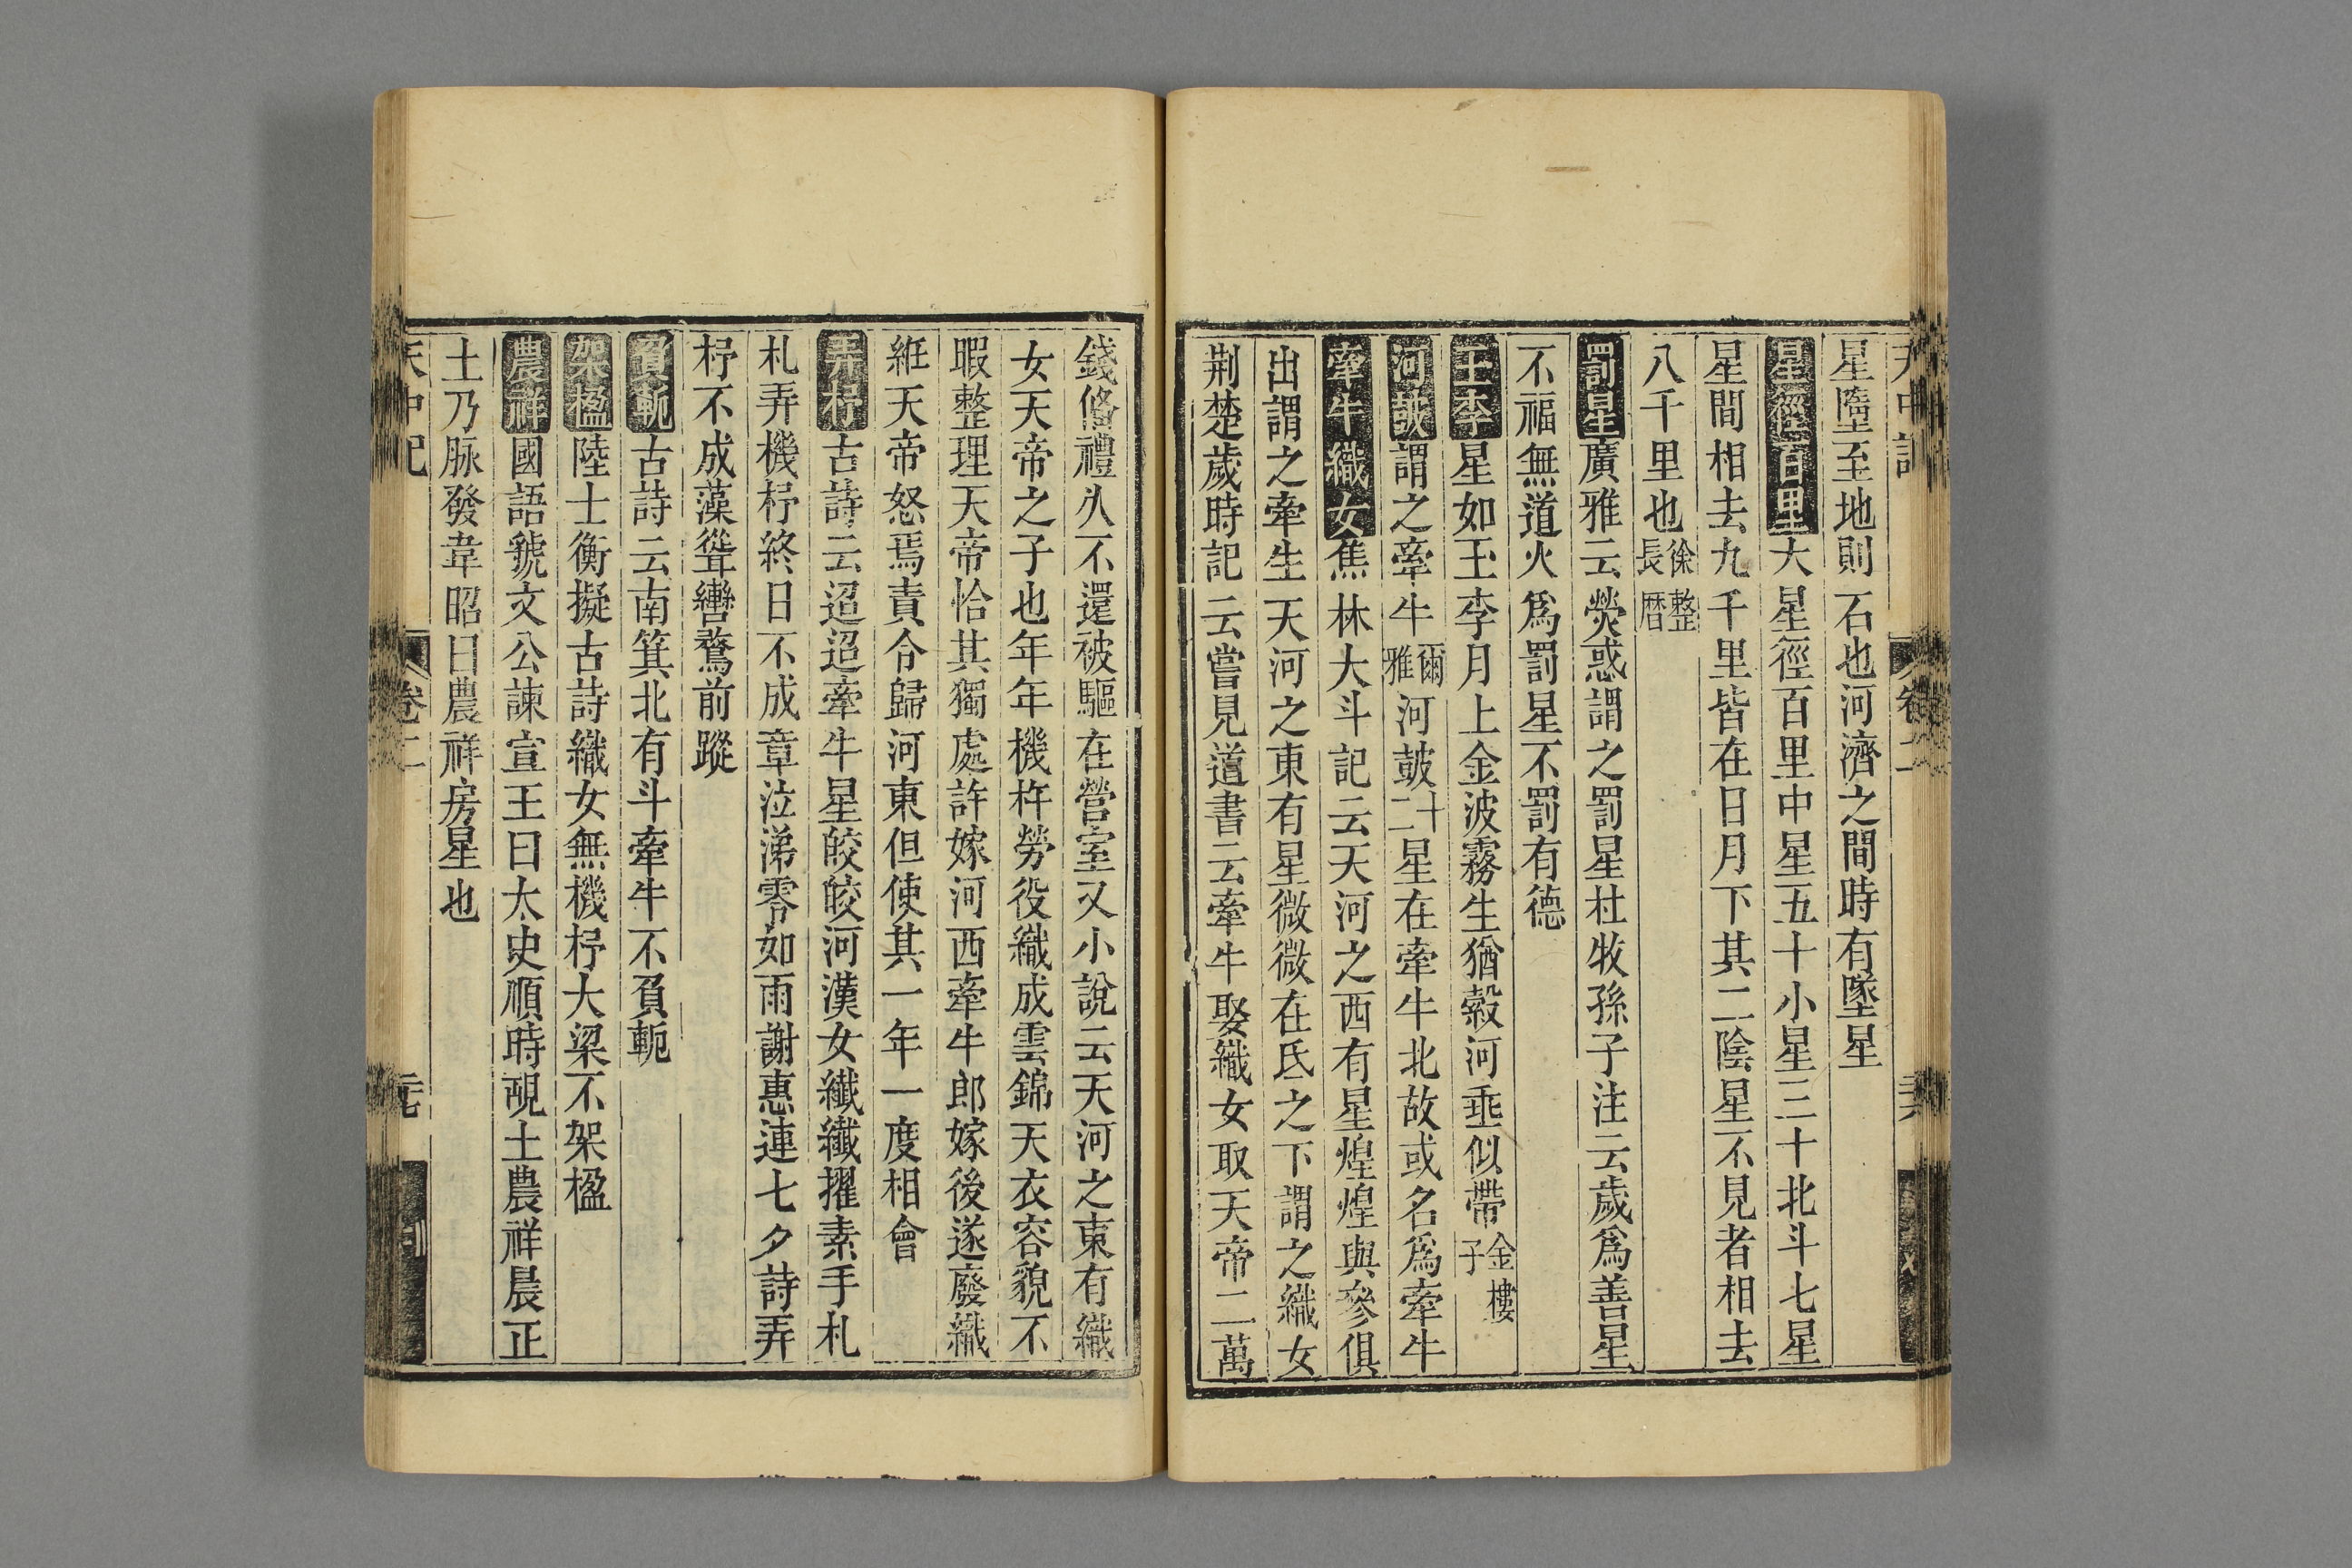 天中記
卷二
星墮至地則石也河濟之間時有墜星
星徑百里大星徑百里中星五十小星三十北斗七星
星間相去九千里皆在日月下其二陰星不見者相去
八千里也徐整長曆
罰星廣雅云熒惑謂之罰星杜牧孫子注云歲爲善星
不福無道火爲罰星不罰有德
玉李星如玉李月上金波霧生猶縠河垂似帶金樓子
河皷謂之牽牛爾雅河皷十二星在牽牛北故或名爲牽牛
牽牛織女焦林大斗記云天河之西有星煌煌與參俱
出謂之牽牛天河之東有星微微在氐之下謂之織女
荆楚歲時記云嘗見道書云牽牛娶織女取天帝二萬
錢俻禮久不還被驅在營室又小說云天河之東有織
女天帝之子也年年機杵勞役織成雲錦天衣容貌不
暇整理天帝怜其獨處許嫁河西牽牛郎嫁後遂廢織
絍天帝怒焉責令歸河東但使其一年一度相會
弄杼古詩云迢迢牽牛星皎皎河漢女纎纎擢素手札
札弄機杼終日不成章泣涕零如雨謝惠連七夕詩弄
杼不成藻聳轡騖前蹤
負軛古詩云南箕北有斗牽牛不負軛
架楹陸士衡擬古詩織女無機杼大梁不架楹
農祥國語虢文公諫宣王曰太史順時覛土農祥晨正
土乃脉發韋昭曰農祥房星也
天中記
卷二